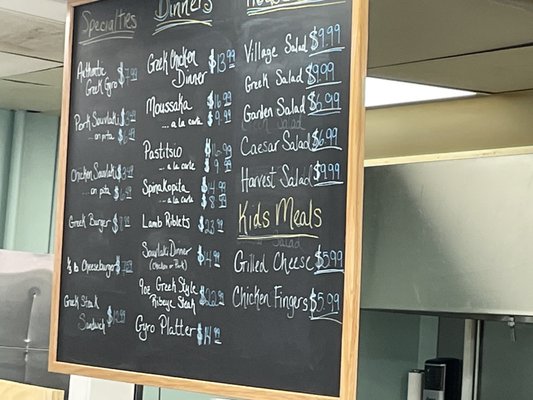 Specialties
Authentic
Greek Gyro $7.99
Pork Souvlaki
... on pita
Chicken Souvlaki
... on pita
Greek Burger
½ lb Cheeseburger
Greek Steak
Sandwich
Dinners
Greek Chicken
Dinner $13.99
Moussaka $16.99
... a la carte $9.99
Pastitsio $16.99
... a la carte $9.99
Spinakopita
... a la carte
Lamb Riblets $23.99
Souvlaki Dinner
(Chicken or Pork)
9oz Greek Style
Ribeye Steak $22.99
Gyro Platter $14.99
Village Salad $9.99
Greek Salad $9.99
Garden Salad $6.99
Caesar Salad $6.99
Harvest Salad $9.99
Kids Meals
Grilled Cheese $5.99
Chicken Fingers $5.99